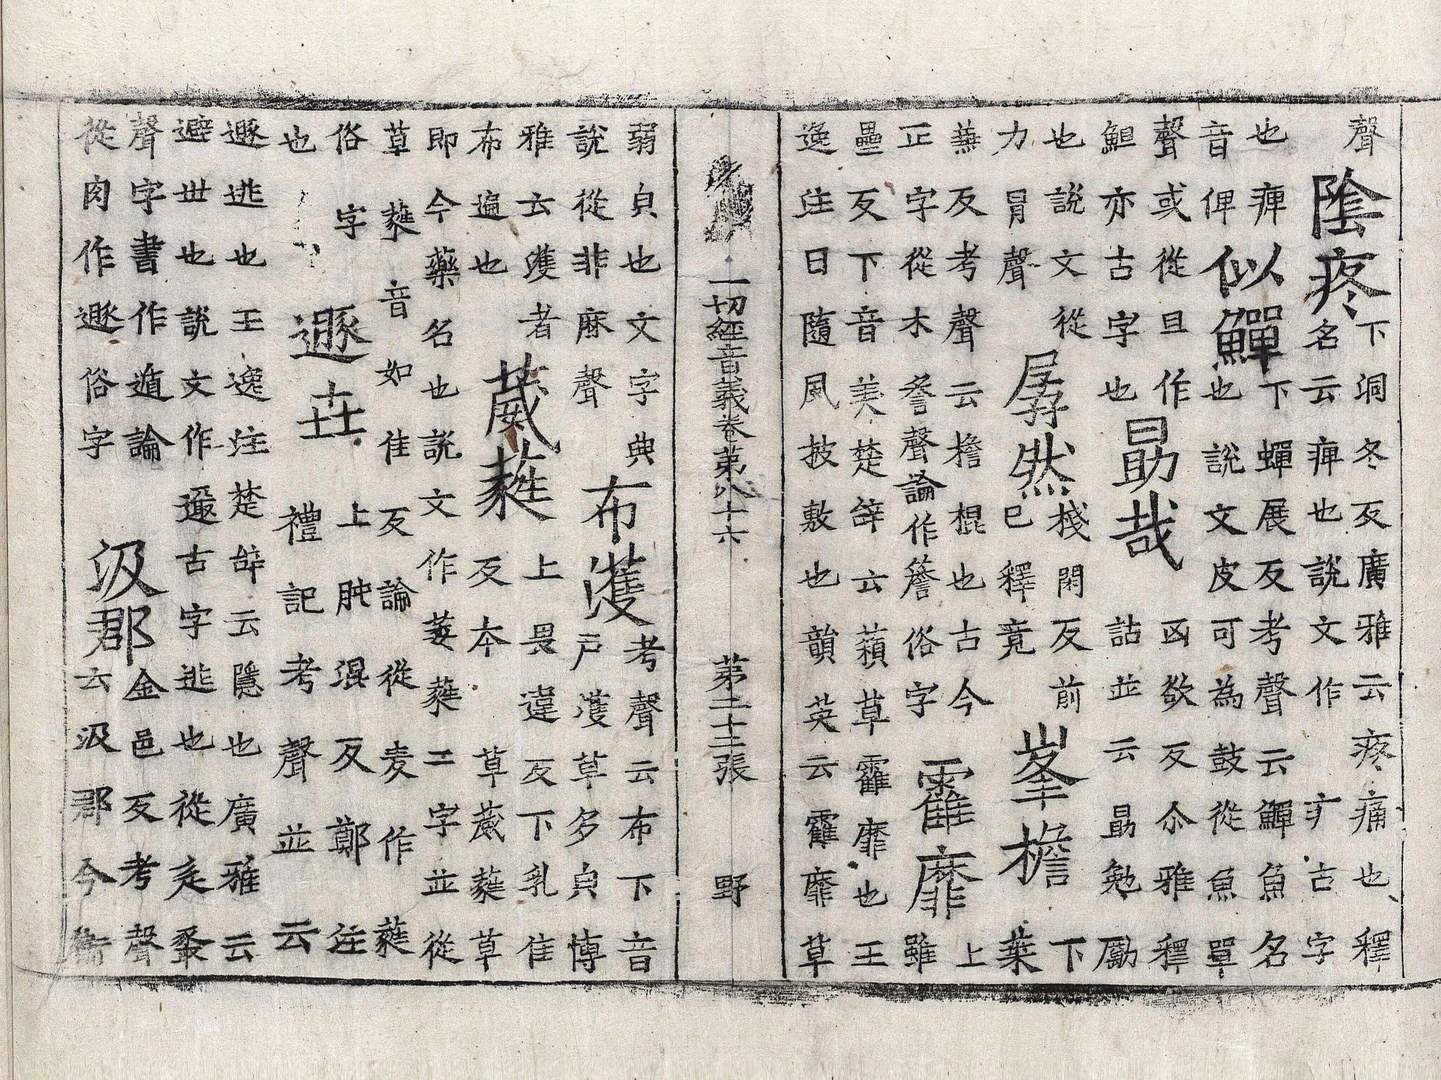 聲陰疼下洞冬反廣雅云疼痛也釋
名云痺也說文作疒古字
也痺似鱓下蟬展反考聲云鱓魚名
音俾也說文皮可為鼓從魚單
聲或從旦作勗哉凶欲反尒雅釋
䱇亦古字也詁並云勗勉勵
也說文從孱然棧閑反前峯檐下
力冐聲已釋竟葉
反考聲云檐棍也古今上
正字從木詹聲論作簷俗字靃靡雖
壘反下音美楚辝云蘋草靃靡也王
逸注曰隨風披敷也韻英云靃靡草
一切經音義卷第八十六 第二十三張 野
弱皃也文字典布濩考聲云布下音
說從非麻聲戶濩草多皃博
雅云濩者葳蕤上畏違反下乳隹
布遍也反本草葳蕤草
即今藥名也說文作萎蕤二字並從
草蕤音如隹反論從麦作蕤
俗字遯世上肫混反鄭注
也禮記考聲並云
遯逃也王逸注楚辝云隱也廣雅云
避世也說文作古字逃也從辵豚
聲字書作遁論汲郡金邑反考聲
從肉作遯俗字云汲郡今衛